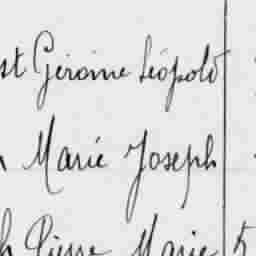 st Gérome Léopold
Marié Joseph
h Pierre Marie 5